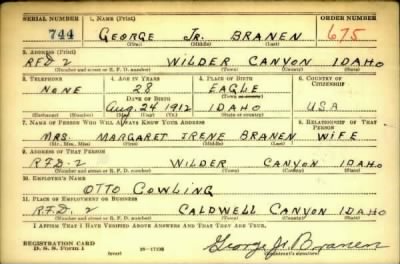 SERIAL NUMBER 1. NAME (Print) ORDER NUMBER
744 GEORGE JR. BRANEN 675
(First) (Middle) (Last)
2. ADDRESS (Print)
RFD 2 WILDER CANYON IDAHO
(Number and street or R. F. D. number) (Town) (County) (State)
3. TELEPHONE 4. AGE IN YEARS 5. PLACE OF BIRTH 6. COUNTRY OF CITIZENSHIP
NONE 28 EAGLE
DATE OF BIRTH (Town or county)
Aug. 24 1912 IDAHO USA
(Exchange) (Number) (Mo.) (Day) (Yr.) (State or country)
7. NAME OF PERSON WHO WILL ALWAYS KNOW YOUR ADDRESS 8. RELATIONSHIP OF THAT PERSON
MRS. MARGARET IRENE BRANEN WIFE
(Mr., Mrs., Miss) (First) (Middle) (Last)
9. ADDRESS OF THAT PERSON
R.F.D-2 WILDER CANYON IDAHO
(Number and street or R. F. D. number) (Town) (County) (State)
10. EMPLOYER'S NAME
OTTO COWLING
11. PLACE OF EMPLOYMENT OR BUSINESS
R.F.D. 2 CALDWELL CANYON IDAHO
(Number and street or R. F. D. number) (Town) (County) (State)
I AFFIRM THAT I HAVE VERIFIED ABOVE ANSWERS AND THAT THEY ARE TRUE.
REGISTRATION CARD
D. S. S. Form 1 (over) 16—17105 George Jr Branen
(Registrant's signature)